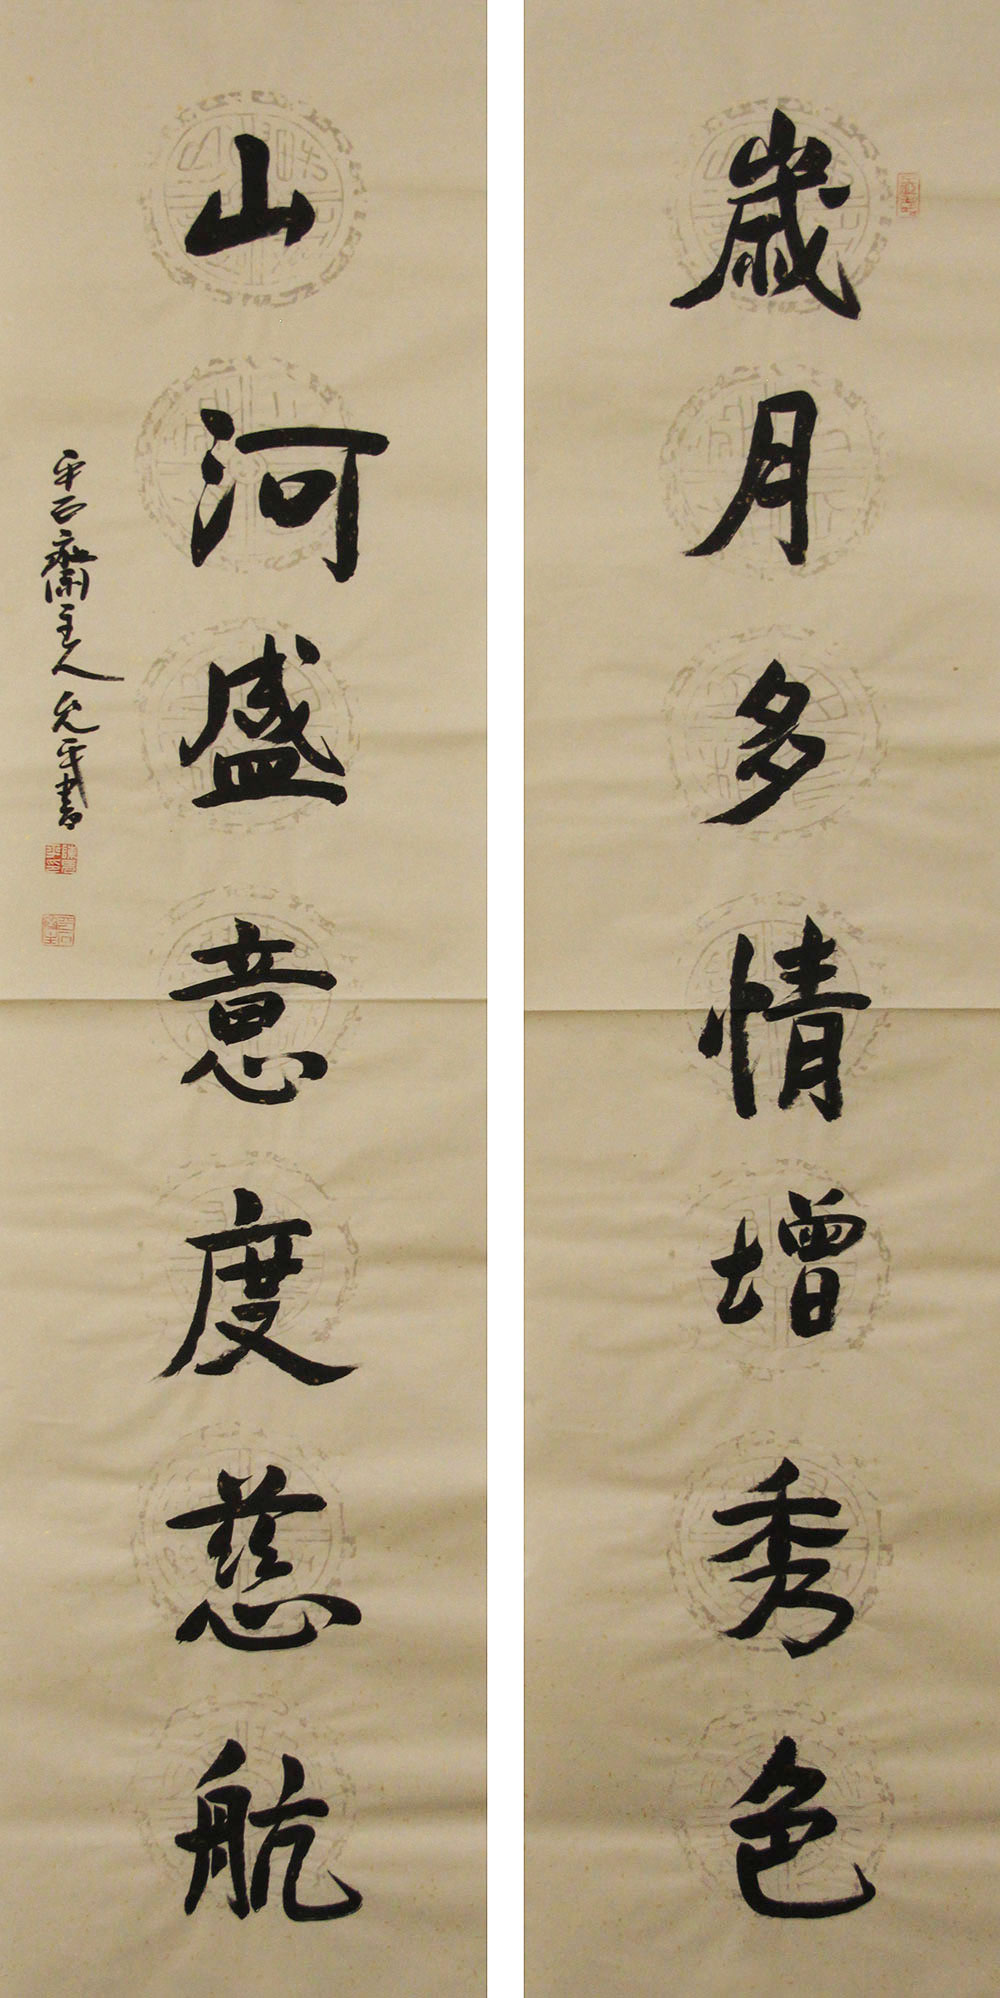 歲月多情增秀色
山河盛意度慈航
雲石齋主人允平書